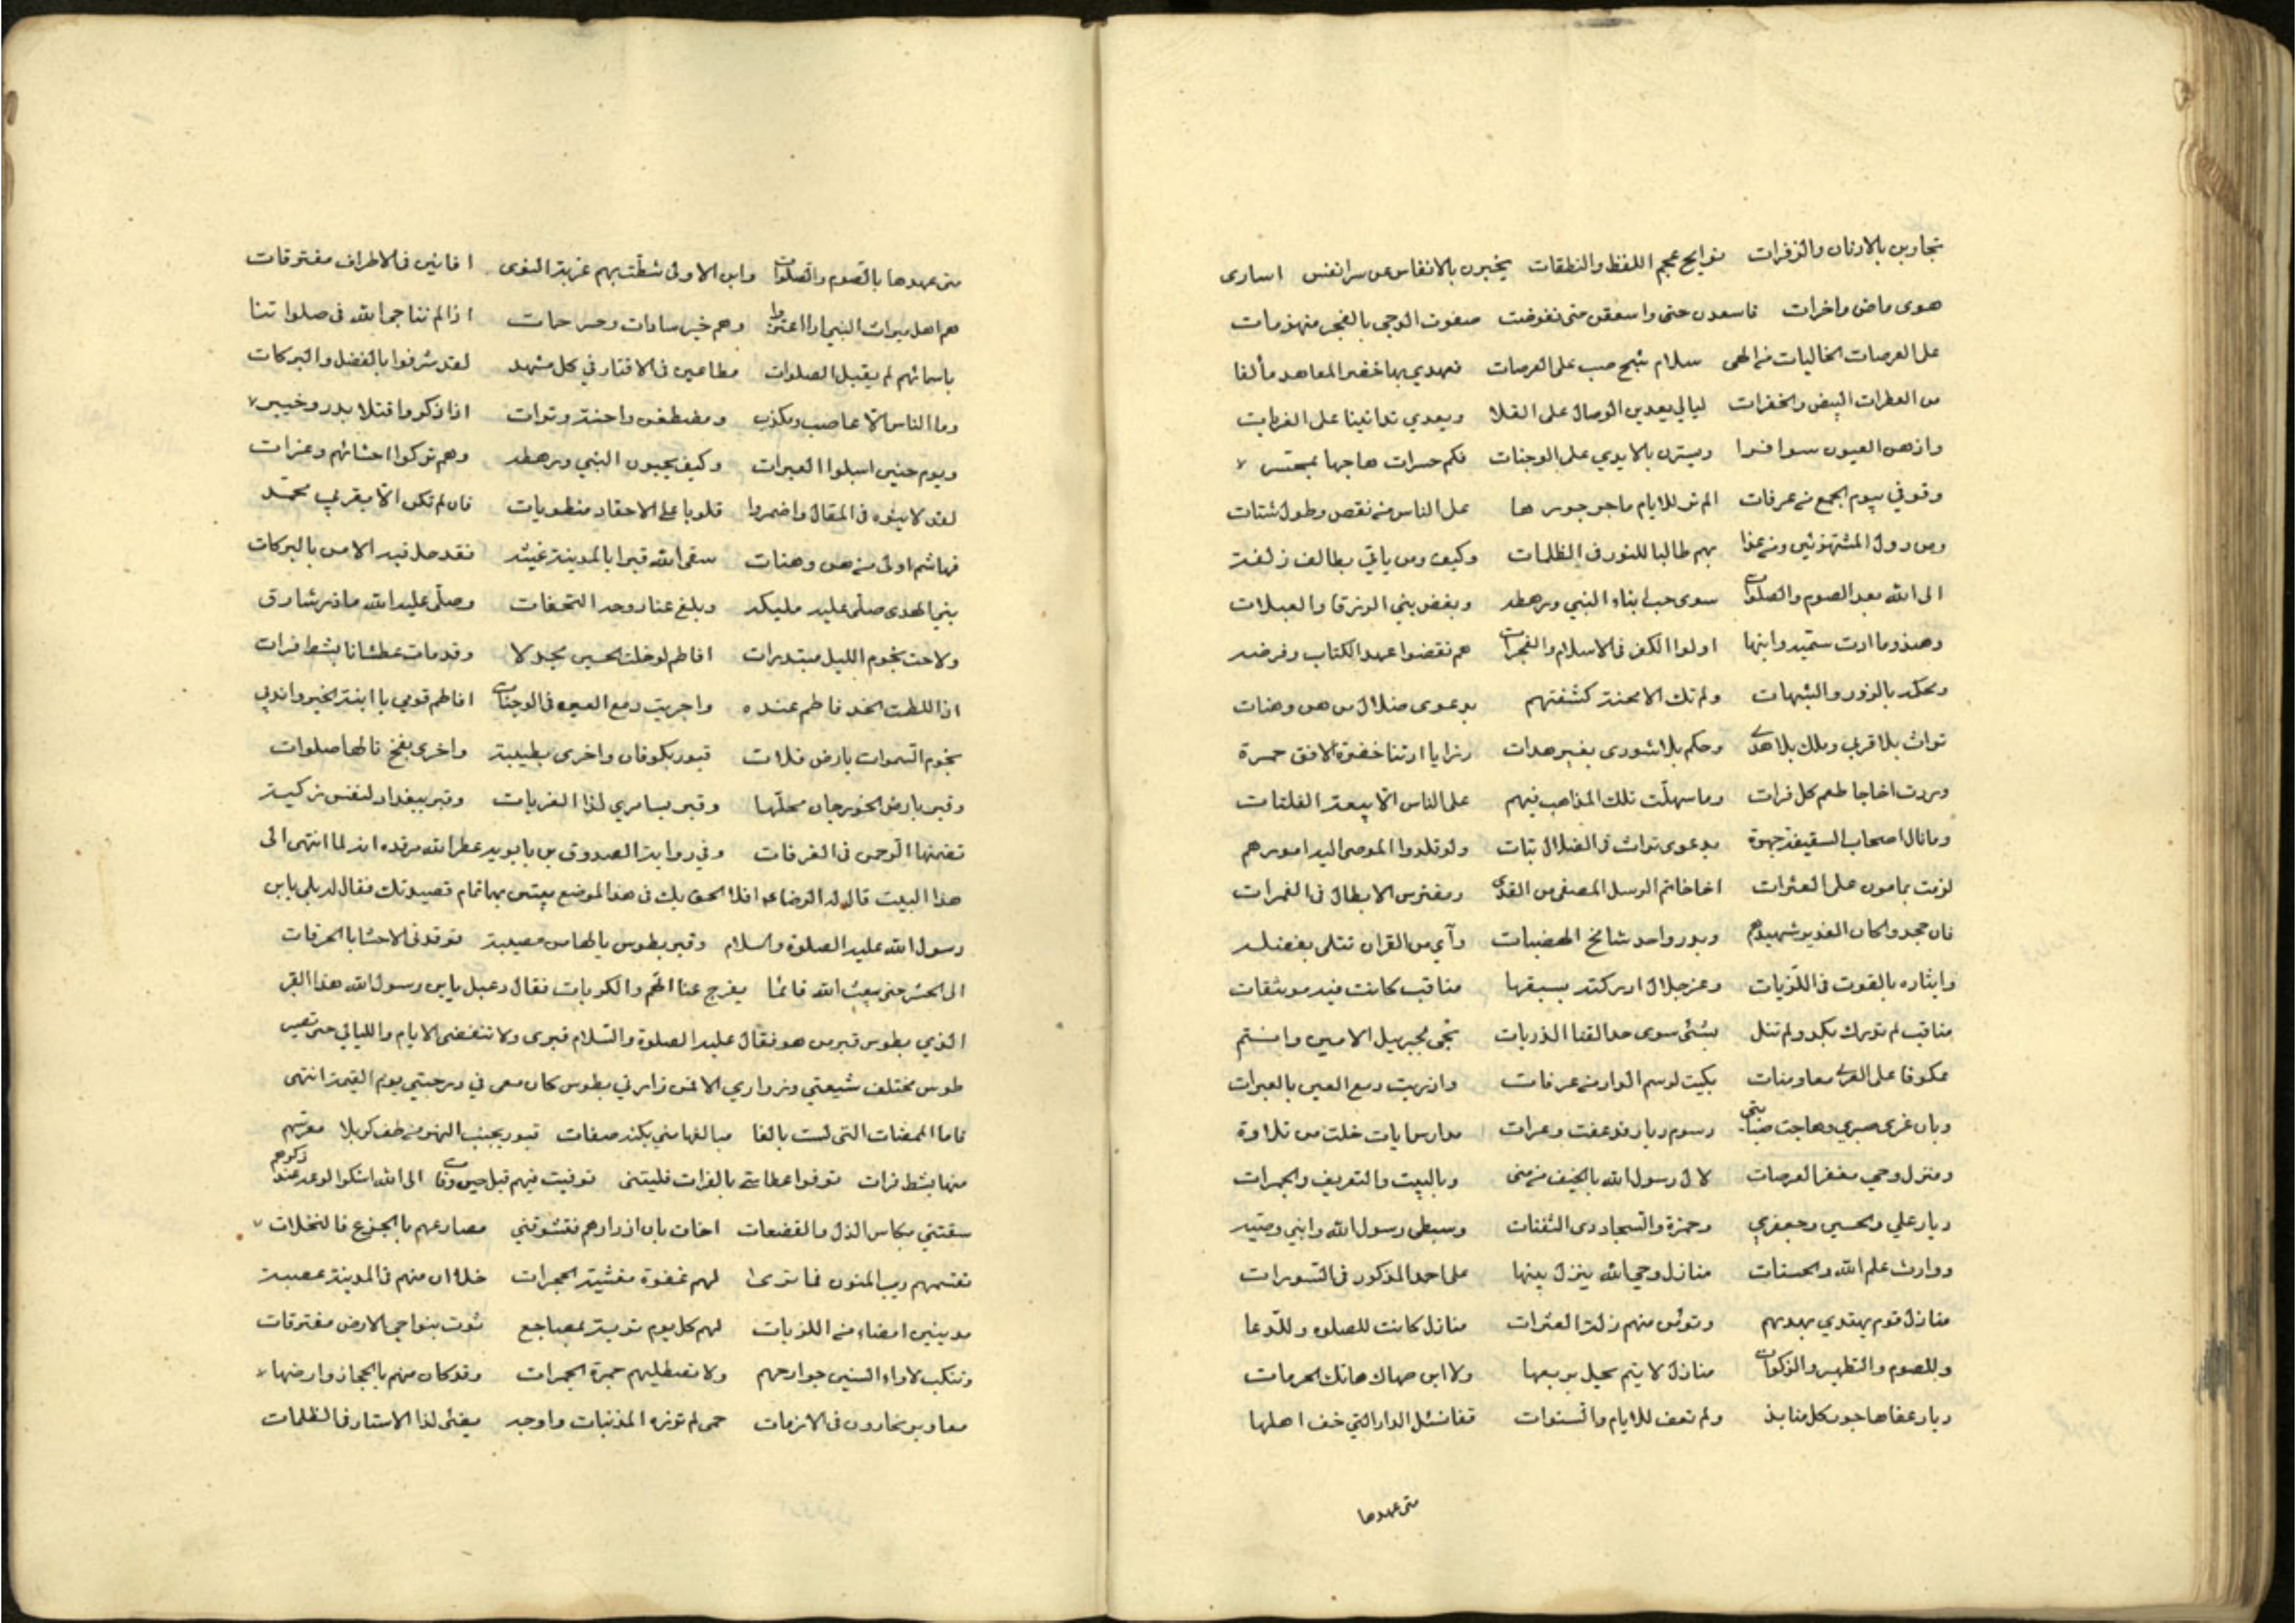 تجاوبن بالارنان والزفرات نوايح عجم اللفظ والنطقات يخبرن بالانفاس عن سر انفس اسارى
هوى ماض واخرات فاسعدن حتى واسعفن حتى تقوضت صفوف الدجى بالفجر منهزمات
على العرصات الخاليات من المهى سلام شج صب على العرصات فعهدي بها خضر المعاهد مألفا
من العطرات البيض والخفرات ليالي يعدين الوصال على القلا ويعدي تدانينا على الغربات
واذ هن العيون سوافرا ويسترن بالايدي على الوجنات فكم حسرات هاجها بمحسر
وقوفي بيوم الجمع من عرفات الم تر للايام ما جر جورها على الناس من نقص وطول شتات
ومن دول المستهزئين ومن غدا بهم طالبا للنور في الظلمات وكيف ومن ياتي بطالف زلفة
الى الله بعد الصوم والصلوات سوى حب ابناء النبي ورهطه وبغض بني الزرقا والعبلات
وهند وما ادت سمية وابنها اولوا الكفر في الاسلام والفجرات هم نقضوا عهد الكتاب وفرضه
ومحكمه بالزور والشبهات ولم تك الا محنة كشفتهم بدعوى ضلال من هن وهنات
تراث بلا قربى وملك بلا هدى وحكم بلا شورى بغير هدات رزايا ارتنا خضرة الافق حمرة
وردت اجاجا طعم كل فرات وما سهلت تلك المذاهب فيهم على الناس الا بيعة الفلتات
وما نال اصحاب السقيفة جهرة بدعوى تراث في الضلال تبات ولو قلدوا الموصى اليه امورهم
لزمت بمامون على العثرات اخا خاتم الرسل المصفى من القذى ومفترس الابطال في الغمرات
فان جحدوا كان الغدير شهيدهم وبدر واحد شامخ الهضبات وآي من القران تتلى بفضله
وايثاره بالقوت في اللزبات وعز جلال ادركته بسبقها مناقب كانت فيه مونثقات
مناقب لم تدرك بكد ولم تنل بشئ سوى حد القنا الذربات نجى لجبريل الامين وانتم
عكوفا على العزى معا ومنات بكيت لرسم الدار من عرفات واذريت دمع العين بالعبرات
وبان عرى صبري وهاجت صبابتي رسوم ديار قد عفت وعرات مدارس ايات خلت من تلاوة
ومنزل وحي مقفر العرصات لال رسول الله بالخيف من منى وبالبيت والتعريف والجمرات
ديار علي والحسين وجعفر وحمزة والسجاد ذى الثفنات وسبطى رسول الله وابني وصيه
ووارث علم الله والحسنات منازل وحي الله ينزل بينها على احمد المذكور في السورات
منازل قوم يهتدي بهديهم وتؤمن منهم زلة العثرات منازل كانت للصلوة وللدعا
وللصوم والتطهير والزكوات منازل لا تيم يحل بربعها ولا ابن صهاك هاتك الحرمات
ديار عفاها جور كل منابذ ولم تعف للايام والسنوات قفا نسئل الدار التي خف اهلها
متى عهدها
متى عهدها بالصوم والصلوات واين الاولى شطت بهم غربة النوى افانين في الاطراف مفترقات
هم اهل ميراث النبي اذا اعتزوا وهم خير سادات وخير حمات اذا لم نناجي الله في صلواتنا
باسمائهم لم يقبل الصلوات مطاعين في الاقتار في كل مشهد لقد شرفوا بالفضل والبركات
وما الناس الا غاصب ومكذب ومضطغن واحنة وترات اذا ذكروا قتلا ببدر وخيبر
ويوم حنين اسبلوا العبرات وكيف يحبون النبي ورهطه وهم تركوا احشائهم وغرات
لقد لاينوه في المقال واضمروا قلوبا على الاحقاد منطويات فان لم تكن الا بقربي محمد
فهاشم اولى من هن وهنات سقى الله قبرا بالمدينة غيثه فقد حل فيه الامن بالبركات
نبي الهدى صلى عليه مليكه وبلغ عنا روحه التحفات وصلى عليه الله ما ذر شارق
ولاحت نجوم الليل مبتدرات افاطم لو خلت الحسين مجدلا وقد مات عطشانا بشط فرات
اذا للطمت الخد فاطم عنده واجريت دمع العين في الوجنات افاطم قومي يا ابنة الخير واندبي
نجوم السموات بارض فلات قبور بكوفان واخرى بطيبة واخرى بفخ نالها صلوات
وقبر بارض الجوزجان محلها وقبر بباخمرى لذا الغربات وقبر ببغداد لنفس زكية
تضمنها الرحمن في الغرفات وفي رواية الصدوق بن بابويه عطر الله مرقده انه لما انتهى الى
هذا البيت قال له الرضا ع افلا الحق بك في هذا الموضع بيتين بهما تمام قصيدتك فقال له بلى يا بن
رسول الله عليه الصلوة والسلام وقبر بطوس يا لها من مصيبة توقد في الاحشا بالحرقات
الى الحشر حتى يبعث الله قائما يفرج عنا الهم والكربات فقال دعبل يا بن رسول الله هذا القبر
الذي بطوس قبر من هو فقال عليه الصلوة والسلام قبرى ولا تنقضى الايام والليالي حتى تصير
طوس مختلف شيعتي وزواري الا فمن زارني بطوس كان معي في درجتي يوم القيمة انتهى
فاما الممضات التي لست بالغا مبالغها مني بكنه صفات قبور بجنب النهر من طف كربلا معرسهم
منها بشط فرات توفوا عطاشى بالفرات فليتني توفيت فيهم قبل حين وفاتي الى الله اشكوا لوعة عند ذكرهم
سقتني بكاس الذل والفضعات اخاف بان ازدارهم فتشوقني مصارعهم بالجزع فالنخلات
تقسمهم ريب المنون فما ترى لهم عقوة مغشية الحجرات خلا ان منهم في المدينة عصبة
مدينين انضاء من اللزبات لهم كل يوم تربة بمضاجع ثوت بنواحي الارض مفترقات
وتنكب لاواء السنين جوارهم ولا تصطليهم جمرة الجمرات وقد كان منهم بالحجاز وارضها
مغاوير نحارون في الازمات حمى لم تزره المذنبات واوجه يضئ لذا الاستار في الظلمات